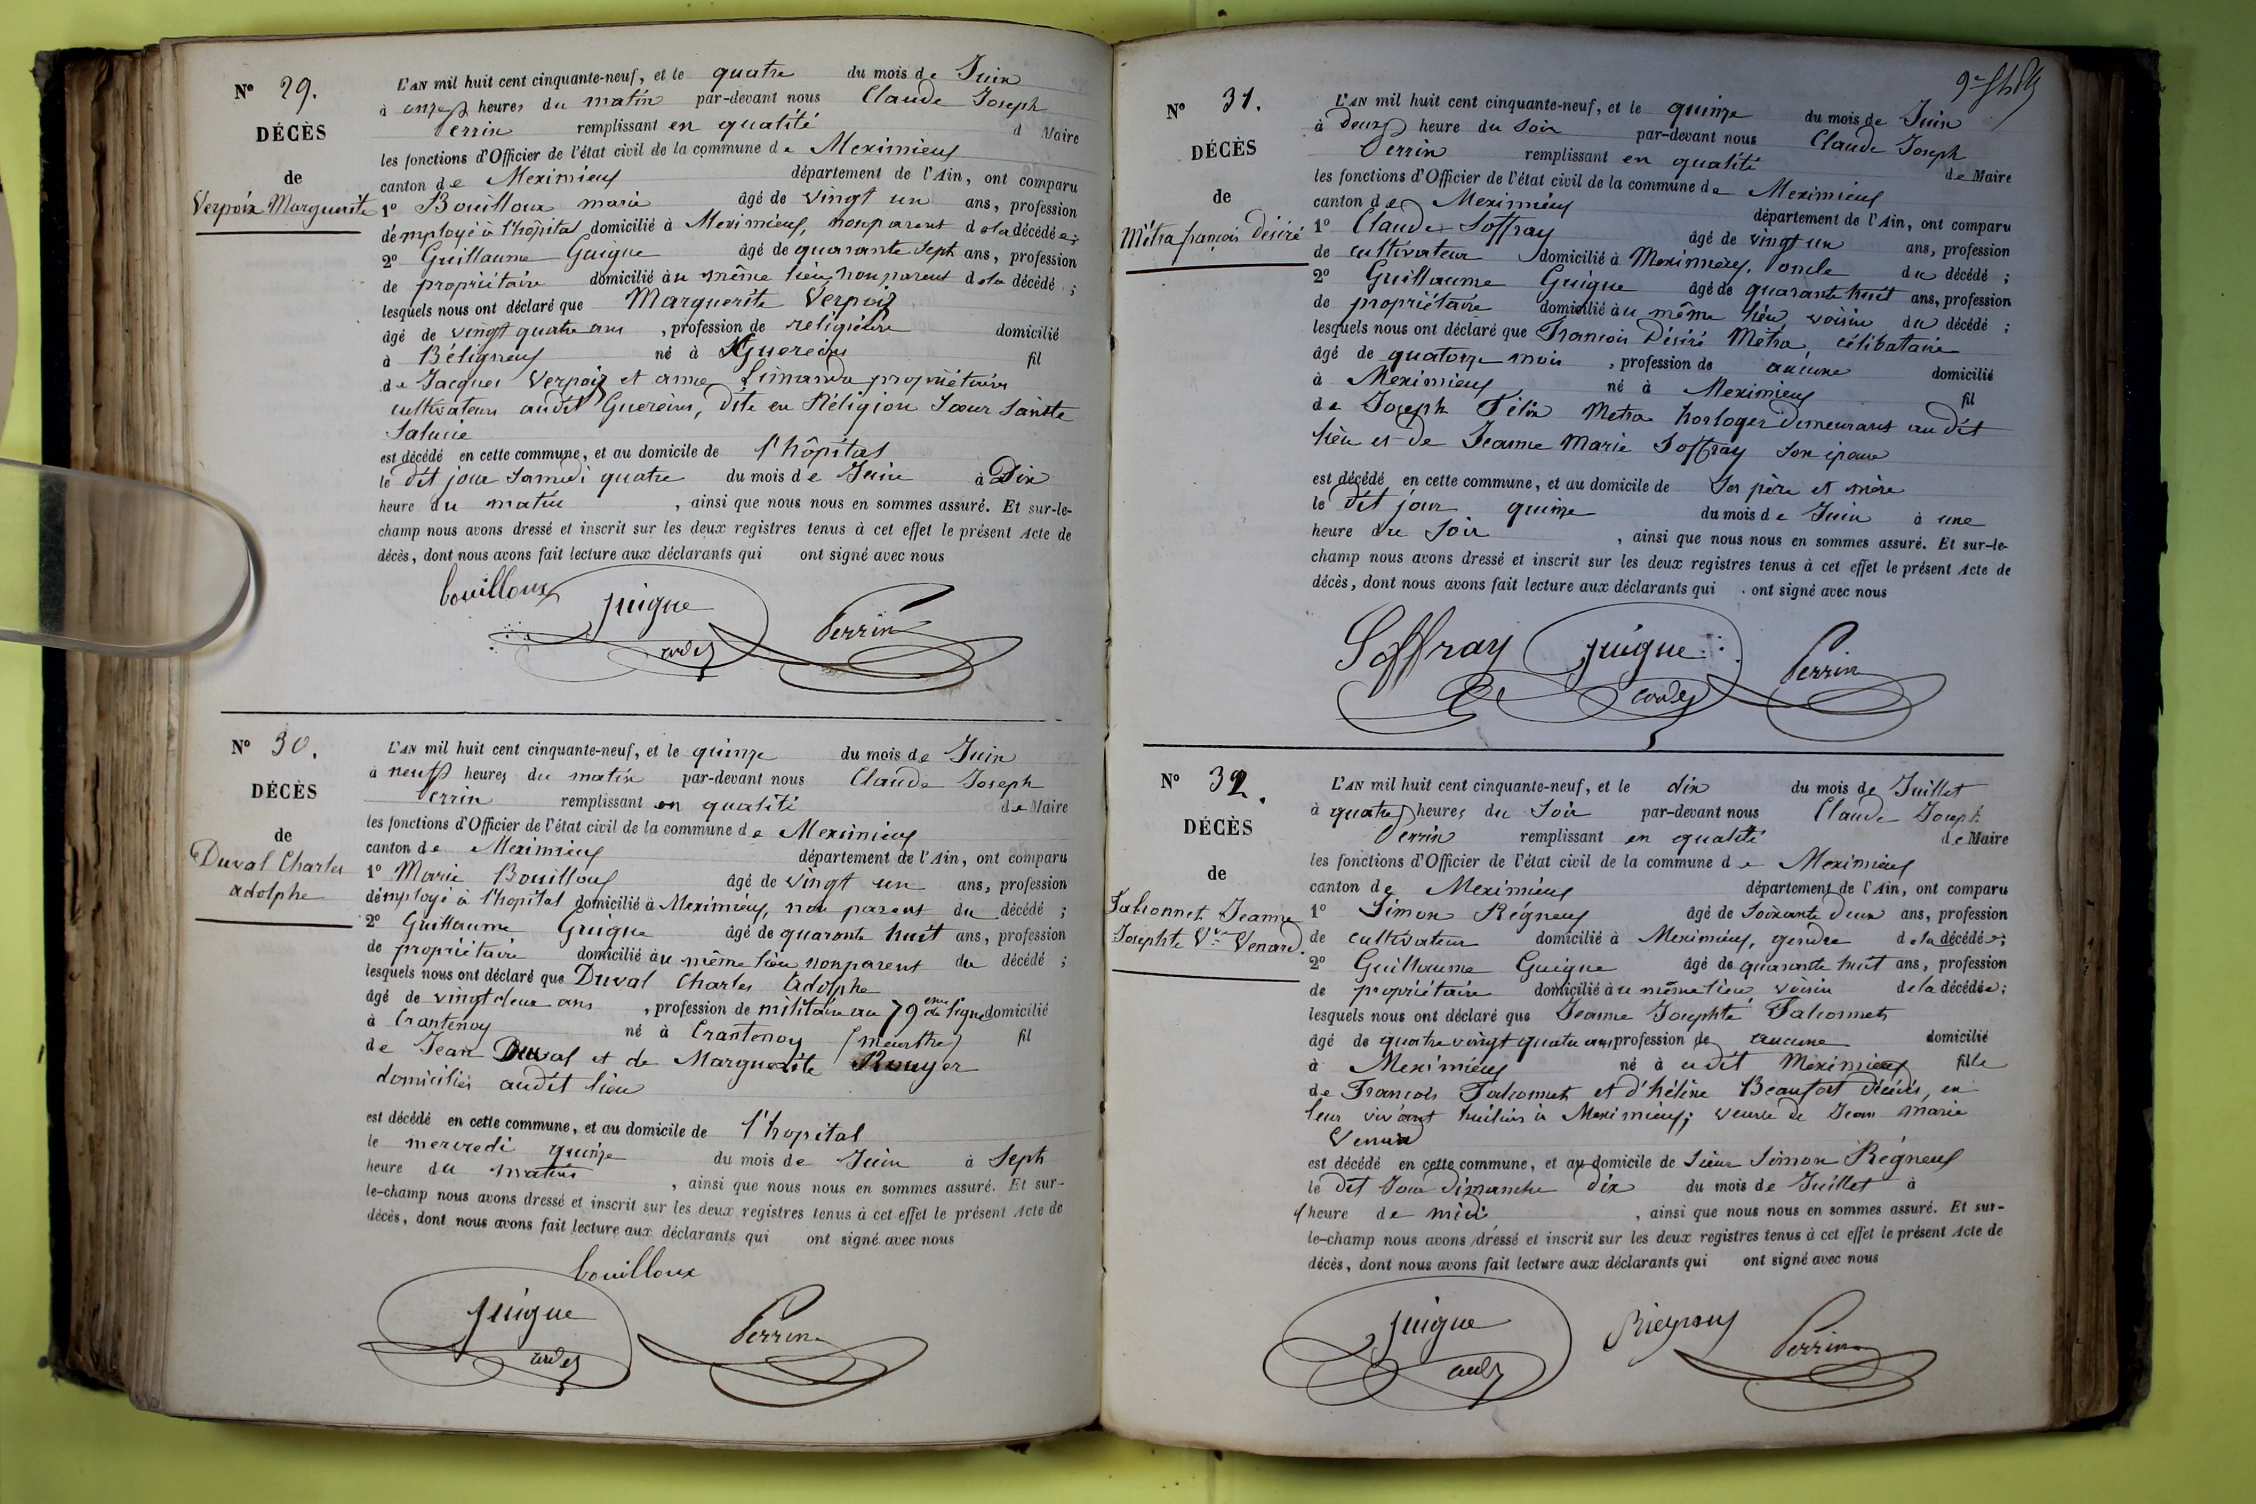 N° 29.
DÉCÈS
de
Verpoix Marguerite
L'AN mil huit cent cinquante-neuf, et le quatre du mois de Juin
à onze heures du matin par-devant nous Claude Joseph
Perrin remplissant en qualité d Maire
les fonctions d'Officier de l'état civil de la commune de Meximieux
canton de Meximieux département de l'Ain, ont comparu
1° Bouilloux marie âgé de vingt un ans, profession
d'employé à l'hôpital domicilié à Meximieux, non parent de la décédée;
2° Guillaume Guigue âgé de quarante sept ans, profession
de propriétaire domicilié au même lieu non parent de la décédé ;
lesquels nous ont déclaré que Marguerite Verpoix
âgé de vingt quatre ans , profession de religieuse domicilié
à Béligneux né à Guereins fil
de Jacques Verpoix et anne propriétaires
cultivateurs audit Guereins, dite en Réligion Sœur Sainte
est décédé en cette commune, et au domicile de l'hôpital
le dit jour Samedi quatre du mois de Juin à Dix
heure du matin , ainsi que nous nous en sommes assuré. Et sur-le-
champ nous avons dressé et inscrit sur les deux registres tenus à cet effet le présent Acte de
décès, dont nous avons fait lecture aux déclarants qui ont signé avec nous
bouilloux guigue Perrin
N° 30.
DÉCÈS
de
Duval Charles
adolphe
L'AN mil huit cent cinquante-neuf, et le quinze du mois de Juin
à neuf heures du matin par-devant nous Claude Joseph
Perrin remplissant en qualité de Maire
les fonctions d'Officier de l'état civil de la commune de Meximieux
canton de Meximieux département de l'Ain, ont comparu
1° Marie Bouilloux âgé de vingt un ans, profession
d'employé à l'hopital domicilié à Meximieux, non parent du décédé ;
2° Guillaume Guigue âgé de quarante huit ans, profession
de propriétaire domicilié au même lieu non parent du décédé ;
lesquels nous ont déclaré que Duval Charles Adolphe
âgé de vingt deux ans , profession de militaire au 79eme de ligne domicilié
à Crantenoy né à Crantenoy (meurthe) fil
de Jean Duval et de Marguerite Rouyer
domiciliés audit lieu
est décédé en cette commune, et au domicile de l'hopital
le mercredi quinze du mois de Juin à Sept
heure du matin , ainsi que nous nous en sommes assuré. Et sur-
le-champ nous avons dressé et inscrit sur les deux registres tenus à cet effet le présent Acte de
décès, dont nous avons fait lecture aux déclarants qui ont signé avec nous
bouilloux
guigue Perrin
N° 31.
DÉCÈS
de
Métra françois Désiré
L'AN mil huit cent cinquante-neuf, et le quinze du mois de Juin
à deux heure du Soir par-devant nous Claude Joseph
Perrin remplissant en qualité de Maire
les fonctions d'Officier de l'état civil de la commune de Meximieux
canton de Meximieux département de l'Ain, ont comparu
1° Claude Soffray âgé de vingt un ans, profession
de cultivateur domicilié à Meximieux, oncle du décédé ;
2° Guillaume Guigue âgé de quarante huit ans, profession
de propriétaire domicilié au même lieu voisin du décédé ;
lesquels nous ont déclaré que François Désiré Métra, célibataire
âgé de quatorze mois , profession de aucune domicilié
à Meximieux né à Meximieux fil
de Joseph Félix Metra horloger demeurant au dit
lieu et de Jeanne Marie Soffray son épouse
est décédé en cette commune, et au domicile de Ses père et mère
le dit jour quinze du mois de Juin à une
heure du Soir , ainsi que nous nous en sommes assuré. Et sur-le-
champ nous avons dressé et inscrit sur les deux registres tenus à cet effet le présent Acte de
décès, dont nous avons fait lecture aux déclarants qui ont signé avec nous
Soffray guigue Perrin
N° 32.
DÉCÈS
de
Falconnet Jeanne
Josephte Vve Venard
L'AN mil huit cent cinquante-neuf, et le dix du mois de Juillet
à quatre heures du Soir par-devant nous Claude Joseph
Perrin remplissant en qualité de Maire
les fonctions d'Officier de l'état civil de la commune de Meximieux
canton de Meximieux département de l'Ain, ont comparu
1° Simon Régneux âgé de Soixante deux ans, profession
de cultivateur domicilié à Meximieux, gendre de la décédée;
2° Guillaume Guigue âgé de quarante huit ans, profession
de propriétaire domicilié au même lieu voisin de la décédée;
lesquels nous ont déclaré que Jeanne Josephte Falconnet
âgé de quatre vingt quatre ans profession de aucune domicilié
à Meximieux né à udit Meximieux fille
de François Falconnet et d'hélène Beaufort décédés, en
leur vivant huiliers à Meximieux; veuve de Jean marie
Venard
est décédé en cette commune, et au domicile de Sieur Simon Régneux
le dit Jour dimanche dix du mois de Juillet à
1 heure de midi , ainsi que nous nous en sommes assuré. Et sur-
le-champ nous avons dressé et inscrit sur les deux registres tenus à cet effet le présent Acte de
décès, dont nous avons fait lecture aux déclarants qui ont signé avec nous
guigue Perrin